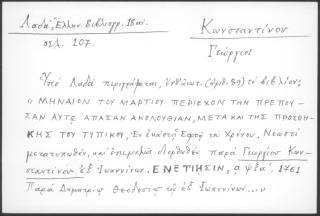 Λαδᾶ, Ἑλλην. Βιβλιογρ. 18 αἰ.
σελ. 107.
Κωνσταντίνου
Γεώργιος
Ὑπό Λαδᾶ περιγράφεται, (ἀριθ. 89) τό βιβλίον;
"ΜΗΝΑΙΟΝ ΤΟΥ ΜΑΡΤΙΟΥ ΠΕΡΙΕΧΟΝ ΤΗΝ ΠΡΕΠΟΥ-
ΣΑΝ ΑΥΤΩ ΑΠΑΣΑΝ ΑΚΟΛΟΥΘΙΑΝ, ΜΕΤΑ ΚΑΙ ΤΗΣ ΠΡΟΣΘΗ-
ΚΗΣ ΤΟΥ ΤΥΠΙΚΟΥ, Ἐν ἑκάστῃ Ἑορτῇ τοῦ Χρόνου. Νεωστί
μετατυπωθέν, καί ἐπιμελῶς διορθωθέν παρά Γεωργίου Κων-
σταντίνου ἐξ Ἰωαννίνων. ΕΝΕΤΙΗΣΙΝ, αψξα΄. 1761
Παρά Δημητρίῳ Θεοδοσίῳ τῷ ἐξ Ἰωαννίνων..."